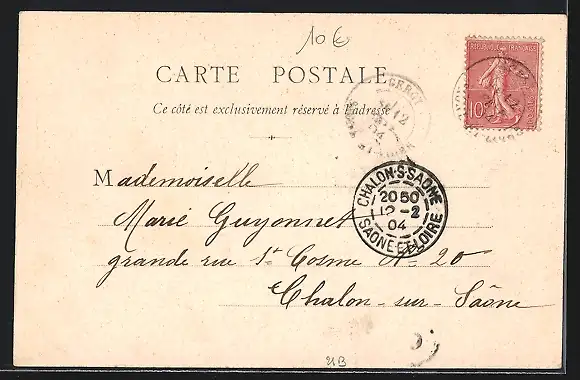 10€
CARTE POSTALE
Ce côté est exclusivement réservé à l'adresse
REPUBLIQUE FRANÇAISE
10
12
04
CHALON-S-SAONE
20 50
12-2
04
SAONE-ET-LOIRE
Mademoiselle
Marie Guyonnet
grande rue St Cosme N° 20
Chalon-sur-Saône